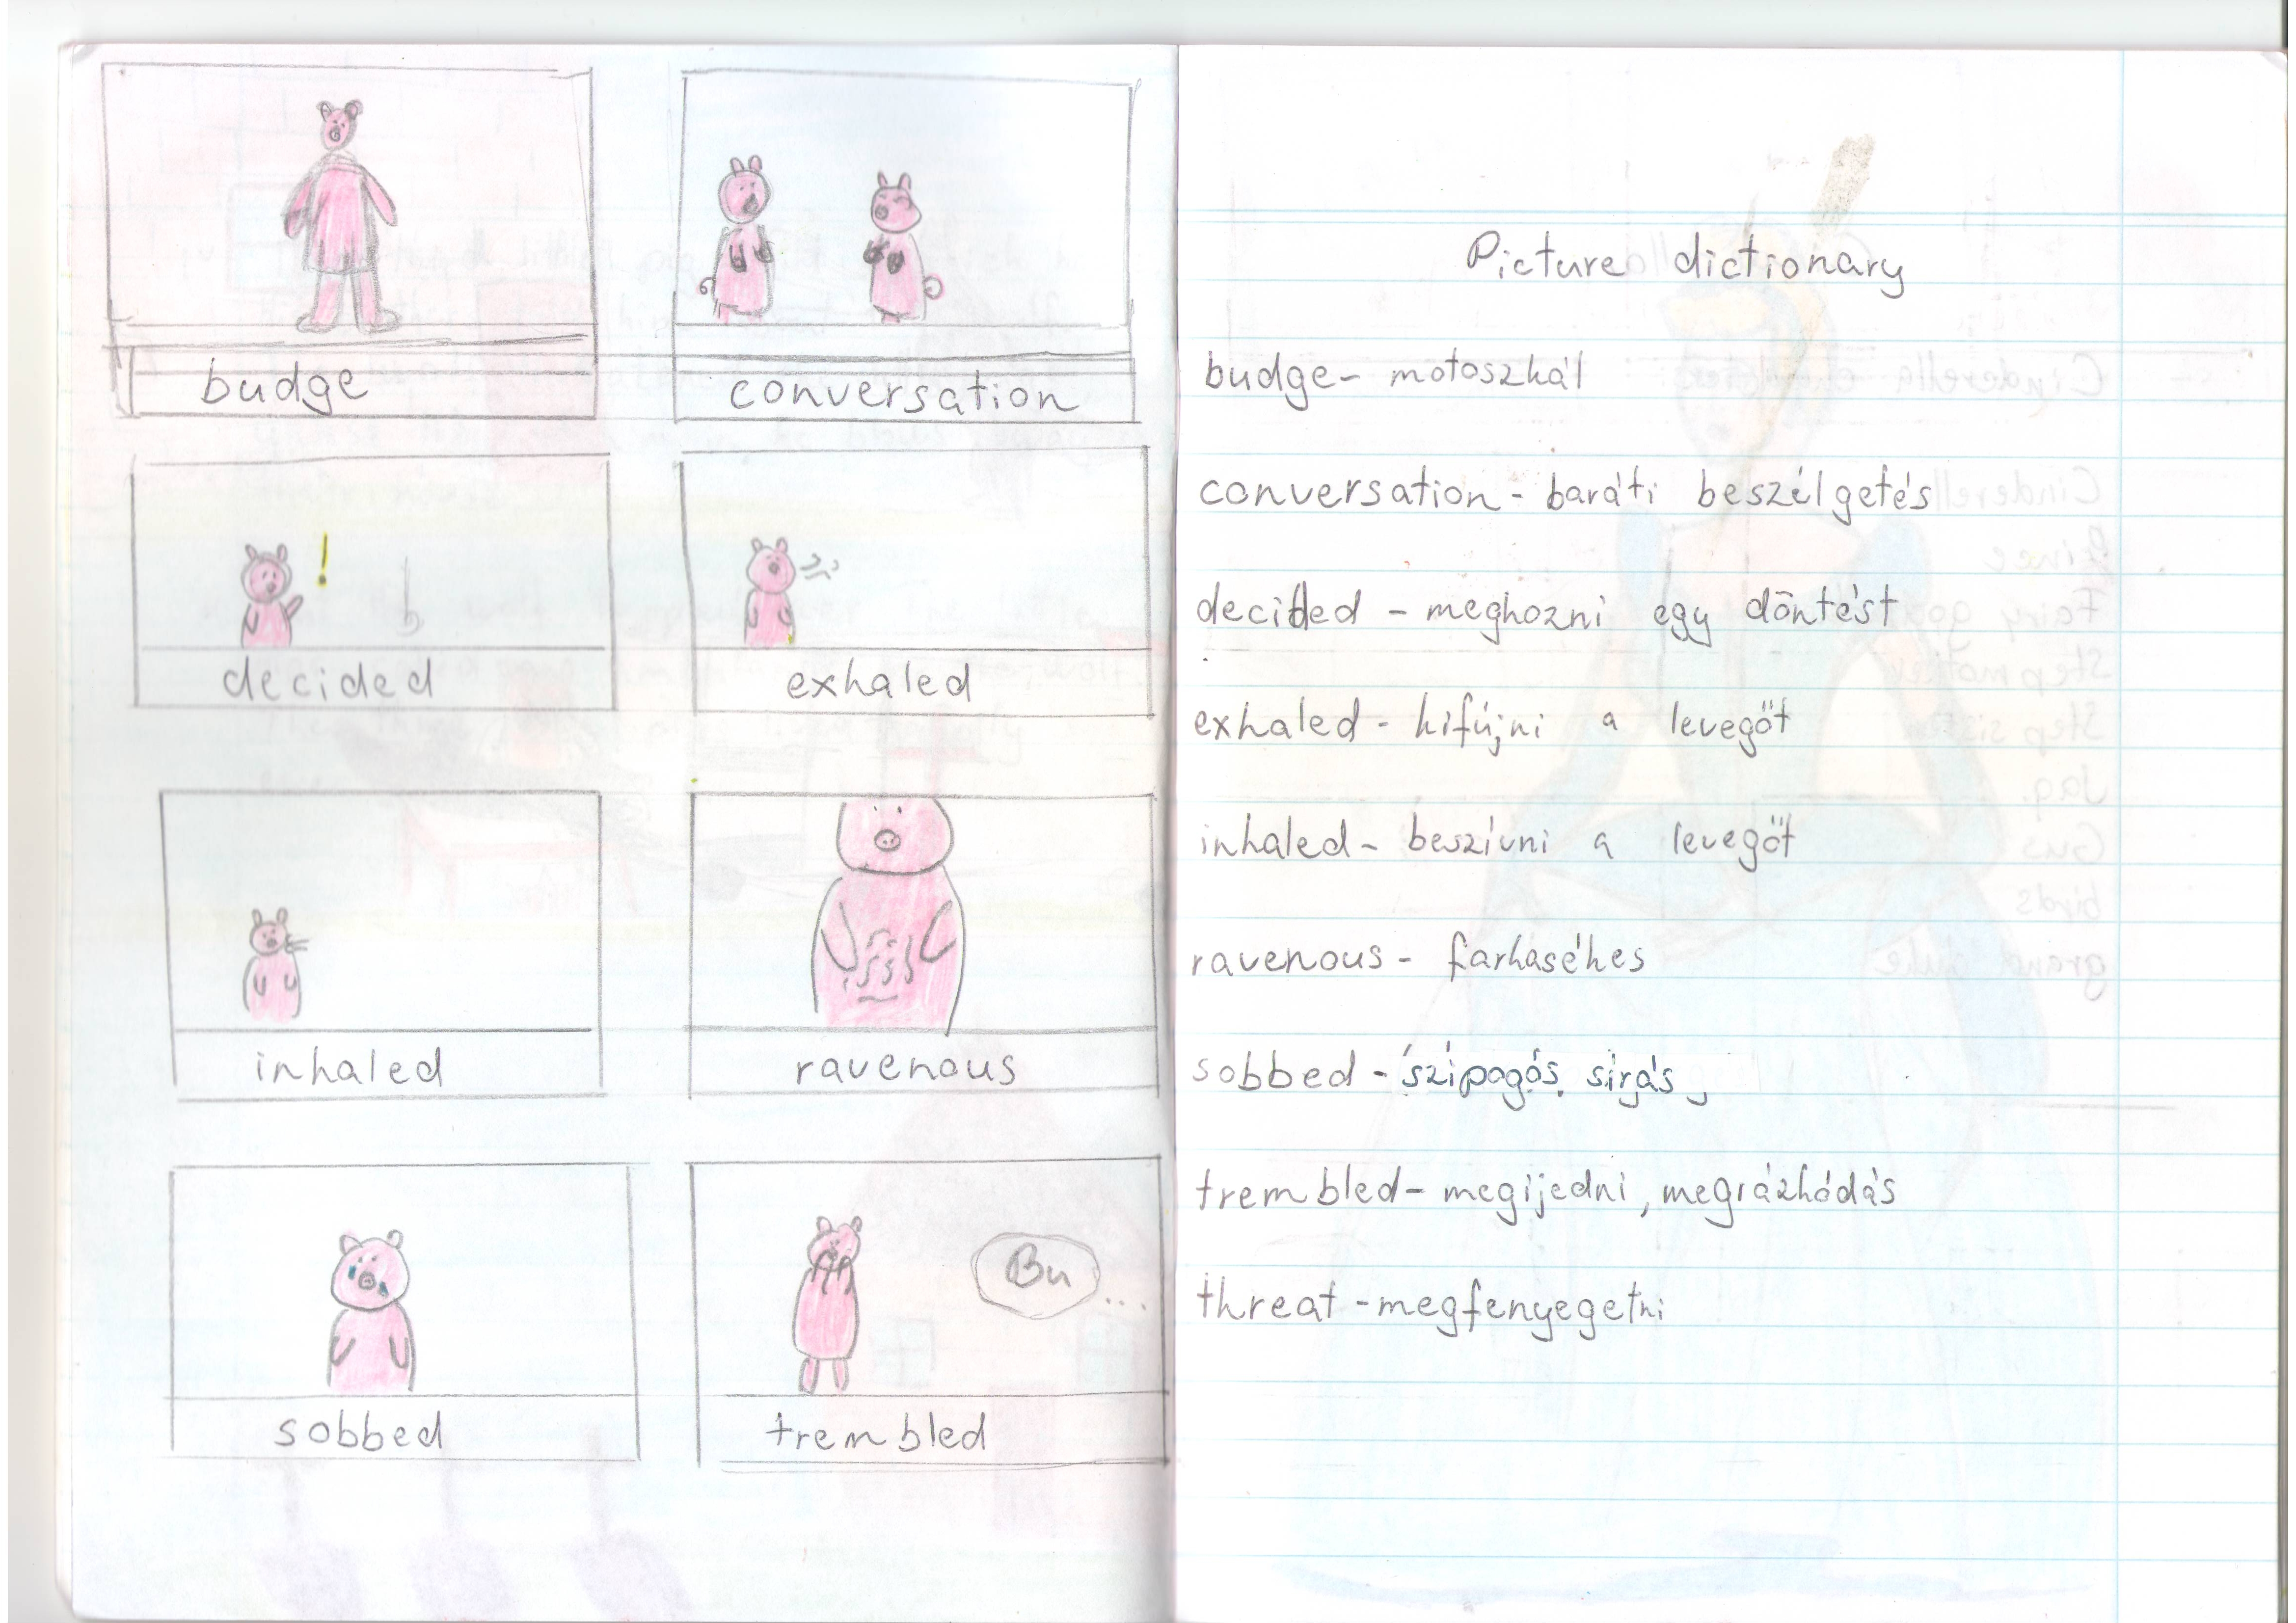 budge
conversation
decided
exhaled
inhaled
ravenous
sobbed
Bu
...
trembled
Picture dictionary
budge- motoszkál
conversation - baráti beszélgetés
decided - meghozni egy döntést
exhaled - kifújni a levegőt
inhaled - beszívni a levegőt
ravenous - farkaséhes
sobbed - szipogós sírás
trembled - megijedni, megrázkódás
threat - megfenyegetni